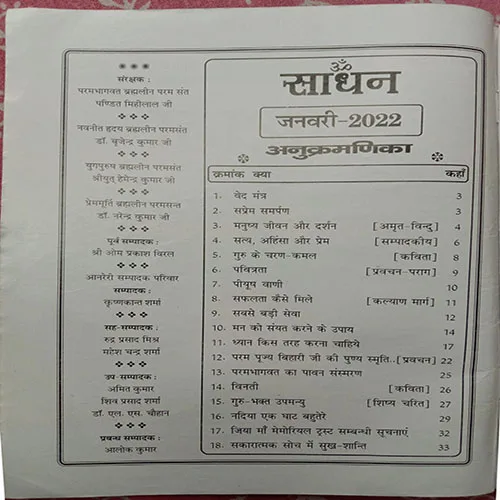 संरक्षक :
परमभागवत ब्रह्मलीन परम संत
पण्डित मिहीलाल जी
नवनीत हृदय ब्रह्मलीन परमसंत
डॉ. बृजेन्द्र कुमार जी
युगपुरुष ब्रह्मलीन परमसंत
श्रीयुत् हेमेन्द्र कुमार जी
प्रेममूर्ति ब्रह्मलीन परमसन्त
डॉ. नरेन्द्र कुमार जी
पूर्व सम्पादक :
श्री ओम प्रकाश विरल
आनरेरी सम्पादक परिवार
सम्पादक :
कृष्णकान्त शर्मा
सह-सम्पादक :
रुद्र प्रसाद मिश्र
महेश चन्द्र शर्मा
उप-सम्पादक :
अमित कुमार
शिव प्रसाद शर्मा
डॉ. एल. एस. चौहान
प्रबन्ध सम्पादक :
आलोक कुमार
ॐ
साधन
जनवरी-2022
अनुक्रमणिका
क्रमांक क्या कहाँ
1. वेद मंत्र 3
2. सप्रेम समर्पण 3
3. मनुष्य जीवन और दर्शन [अमृत-विन्दु] 4
4. सत्य, अहिंसा और प्रेम [सम्पादकीय] 6
5. गुरु के चरण-कमल [कविता] 8
6. पवित्रता [प्रवचन-पराग] 9
7. पीयूष वाणी 10
8. सफलता कैसे मिले [कल्याण मार्ग] 11
9. सबसे बड़ी सेवा 12
10. मन को संयत करने के उपाय 14
11. ध्यान किस तरह करना चाहिये 17
12. परम पूज्य बिहारी जी की पुण्य स्मृति..[प्रवचन] 22
13. परमभागवत का पावन संस्मरण 25
14. विनती [कविता] 26
15. गुरु-भक्त उपमन्यु [शिष्य चरित] 27
16. नदिया एक घाट बहुतेरे 29
17. जिया माँ मेमोरियल ट्रस्ट सम्बन्धी सूचनाएं 32
18. सकारात्मक सोच में सुख-शान्ति 33